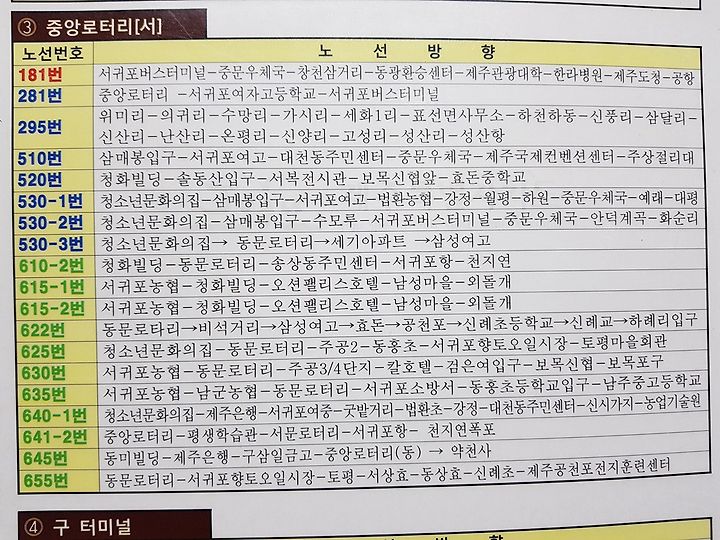 ③ 중앙로터리[서]
노선번호 노 선 방 향
181번 서귀포버스터미널-중문우체국-창천삼거리-동광환승센터-제주관광대학-한라병원-제주도청-공항
281번 중앙로터리 -서귀포여자고등학교-서귀포버스터미널
295번 위미리-의귀리-수망리-가시리-세화1리-표선면사무소-하천하동-신풍리-삼달리-
신산리-난산리-온평리-신양리-고성리-성산리-성산항
510번 삼매봉입구-서귀포여고-대천동주민센터-중문우체국-제주국제컨벤션센터-주상절리대
520번 청화빌딩-솔동산입구-서복전시관-보목신협앞-효돈중학교
530-1번 청소년문화의집-삼매봉입구-서귀포여고-법환농협-강정-월평-하원-중문우체국-예래-대평
530-2번 청소년문화의집-삼매봉입구-수모루-서귀포버스터미널-중문우체국-안덕계곡-화순리
530-3번 청소년문화의집→ 동문로터리→세기아파트 →삼성여고
610-2번 청화빌딩-동문로터리-송상동주민센터-서귀포항-천지연
615-1번 서귀포농협-청화빌딩-오션팰리스호텔-남성마을-외돌개
615-2번 서귀포농협-청화빌딩-오션팰리스호텔-남성마을-외돌개
622번 동문로타리→비석거리→삼성여고→효돈→공천포→신례초등학교→신례교→하례리입구
625번 청소년문화의집-동문로터리-주공2-동홍초-서귀포향토오일시장-토평마을회관
630번 서귀포농협-동문로터리-주공3/4단지-칼호텔-검은여입구-보목신협-보목포구
635번 서귀포농협-남군농협-동문로터리-서귀포소방서-동홍초등학교입구-남주중고등학교
640-1번 청소년문화의집-제주은행-서귀포여중-굿밭거리-법환초-강정-대천동주민센터-신시가지-농업기술원
641-2번 중앙로터리-평생학습관-서문로터리-서귀포항- 천지연폭포
645번 동미빌딩-제주은행-구삼일금고-중앙로터리(동) → 약천사
655번 동문로터리-서귀포향토오일시장-토평-서상효-동상효-신례초-제주공천포전지훈련센터
④ 구 터미널